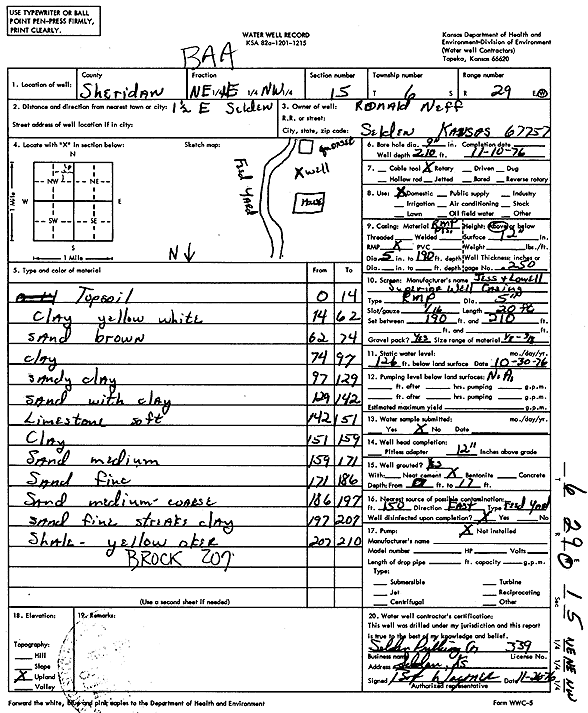 USE TYPEWRITER OR BALL
POINT PEN-PRESS FIRMLY,
PRINT CLEARLY.
WATER WELL RECORD
KSA 82a-1201-1215
Kansas Department of Health and
Environment-Division of Environment
(Water well Contractors)
Topeka, Kansas 66620
BAA
1. Location of well:
County
Sheridan
Fraction
NE 1/4 NE 1/4 NW 1/4
Section number
15
Township number
T 6 S
Range number
R 29 E W
2. Distance and direction from nearest town or city: 1½ E Selden
Street address of well location if in city:
3. Owner of well: Ronald Neff
R.R. or street:
City, state, zip code: Selden Kansas 67757
4. Locate with "X" in section below:
N
NW NE
W E
SW SE
S
1 Mile
1 Mile
Sketch map:
Feed Yard
X well
House
N
5. Type and color of material
From To
Topsoil 0 14
Clay yellow white 14 62
Sand brown 62 74
Clay 74 97
Sandy clay 97 129
Sand with clay 129 142
Limestone soft 142 151
Clay 151 159
Sand medium 159 171
Sand fine 171 186
Sand medium-coarse 186 197
Sand fine streaks clay 197 207
Shale - yellow oker 207 210
BROCK 207
(Use a second sheet if needed)
6. Bore hole dia. 9" in. Completion date
Well depth 210 ft. 11-10-76
7. Cable tool X Rotary Driven Dug
Hollow rod Jetted Bored Reverse rotary
8. Use: X Domestic Public supply Industry
Irrigation Air conditioning Stock
Lawn Oil field water Other
9. Casing: Material RMP Height: Above or below
Threaded Welded Surface 12" in.
RMP X PVC Weight lbs./ft.
Dia. 5 in. to 190 ft. depth Wall Thickness: inches or
Dia. in. to ft. depth gage No. .250
10. Screen: Manufacturer's name Jess & Lowell
Superior Well Casing
Type RMP Dia. 5"
Slot/gauze 1/16 Length 20 ft
Set between 190 ft. and 210 ft.
ft. and ft.
Gravel pack? Yes Size range of material 1/8-3/8
11. Static water level: mo./day/yr.
126 ft. below land surface Date 10-30-76
12. Pumping level below land surface: N.A.
ft. after hrs. pumping g.p.m.
ft. after hrs. pumping g.p.m.
Estimated maximum yield g.p.m.
13. Water sample submitted: mo./day/yr.
Yes X No Date
14. Well head completion:
Pitless adapter 12" Inches above grade
15. Well grouted? Yes
With: Neat cement X Bentonite Concrete
Depth: From 0 ft. to 17 ft.
16. Nearest source of possible contamination:
ft. 150 Direction East Type Feed Yard
Well disinfected upon completion? X Yes No
17. Pump: X Not installed
Manufacturer's name
Model number HP Volts
Length of drop pipe ft. capacity g.p.m.
Type:
Submersible Turbine
Jet Reciprocating
Centrifugal Other
18. Elevation:
Topography:
Hill
Slope
X Upland
Valley
19. Remarks:
20. Water well contractor's certification:
This well was drilled under my jurisdiction and this report
is true to the best of my knowledge and belief.
Selden Drilling Co 339
Business name License No.
Address Selden, KS
Signed Date 11-26-76
Authorized representative
Forward the white, blue and pink copies to the Department of Health and Environment
Form WWC-5
T 6 R 29 W Sec 15 NE NE NW
1/4 1/4 1/4